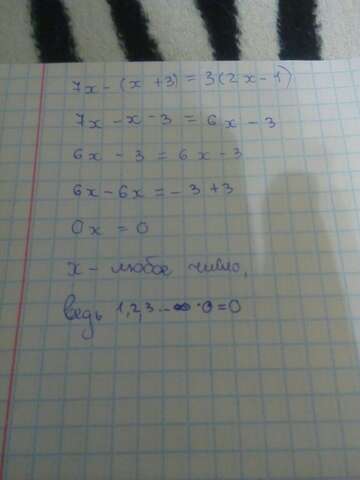 7x - (x + 3) = 3(2x - 1)
7x - x - 3 = 6x - 3
6x - 3 = 6x - 3
6x - 6x = -3 + 3
0x = 0
x - любое число,
ведь 1,2,3...∞ · 0 = 0